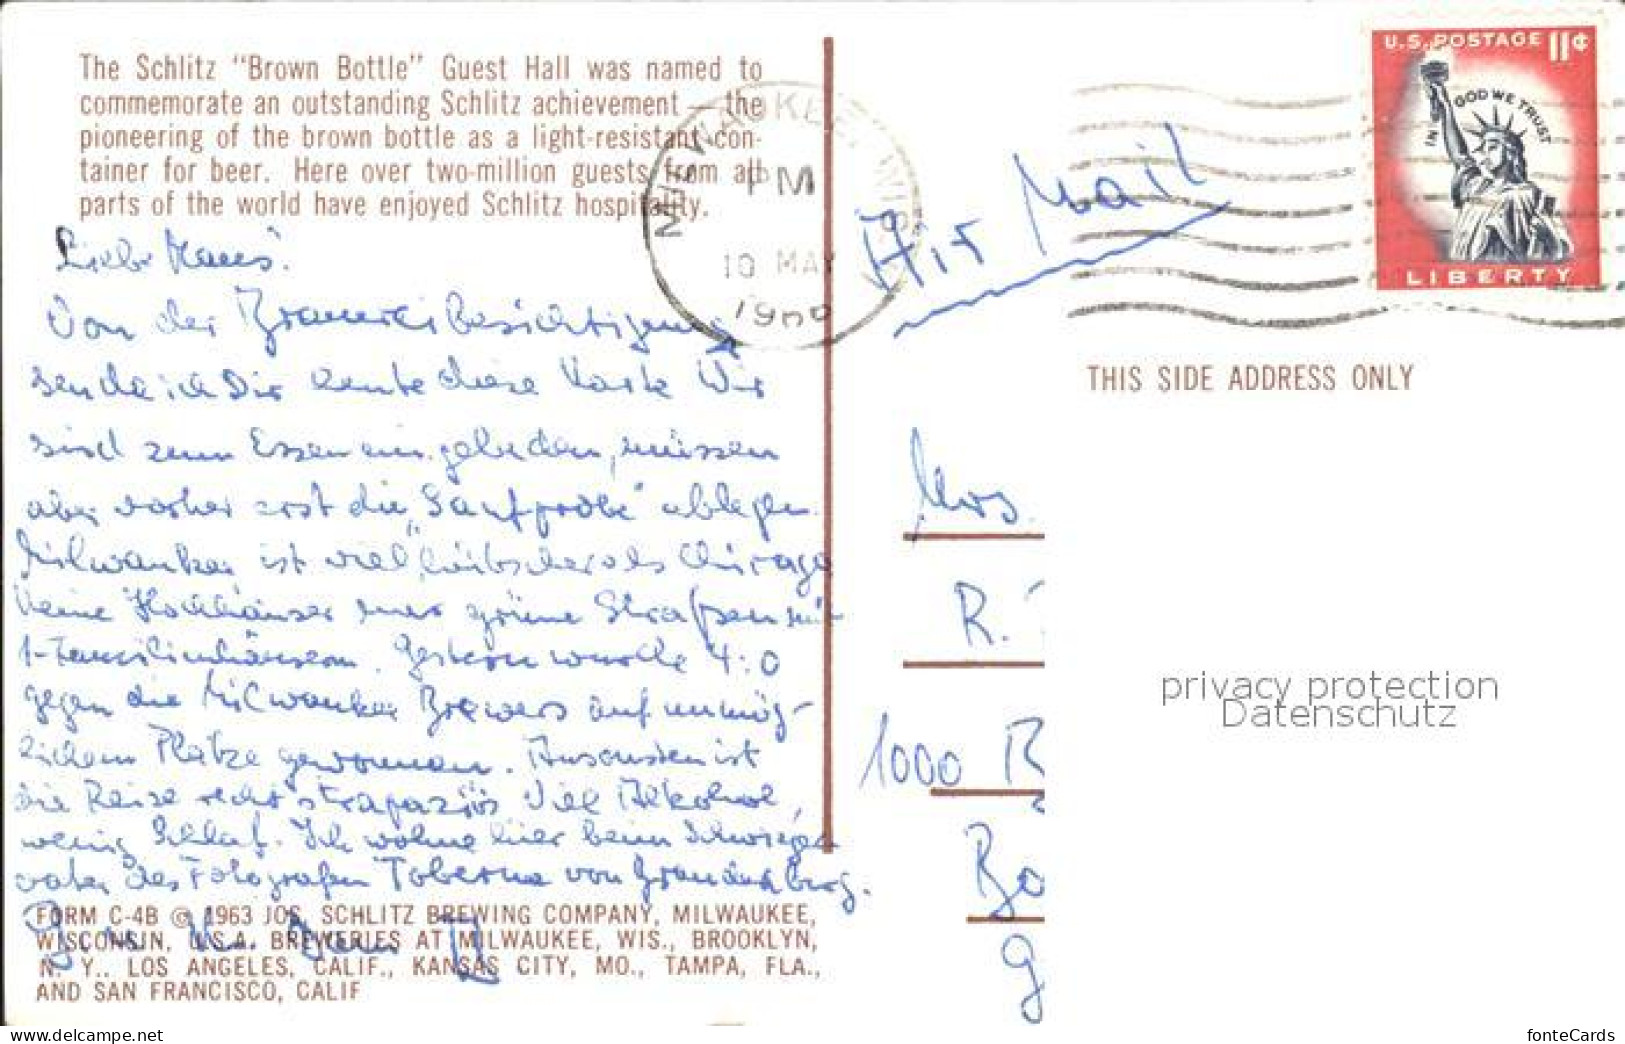 The Schlitz "Brown Bottle" Guest Hall was named to
commemorate an outstanding Schlitz achievement — the
pioneering of the brown bottle as a light-resistant con-
tainer for beer. Here over two-million guests from all
parts of the world have enjoyed Schlitz hospitality.
Liebe
Von der Brauereibesichtigung
sende ich Dir heute diese Karte Wir
sind zum Essen eingeladen, müssen
aber vorher erst die „Saufprobe" ablegen.
Milwaukee ist viel hübscher als Chicago
keine Hochhäuser nur grüne Straßen mit
1-Familienhäusern. Gestern wurde 4:0
gegen die Milwaukee Brewers auf unmög-
lichem Platze gewonnen. Ansonsten ist
die Reise recht strapaziös viel Alkohol,
wenig Schlaf. Ich wohne hier beim Schwieger
vater des Fotografen Toberna von Brandenberg.
FORM C-4B © 1963 JOS. SCHLITZ BREWING COMPANY, MILWAUKEE,
WISCONSIN, U.S.A. BREWERIES AT MILWAUKEE, WIS., BROOKLYN,
N. Y., LOS ANGELES, CALIF., KANSAS CITY, MO., TAMPA, FLA.,
AND SAN FRANCISCO, CALIF
MILWAUKEE, WIS
PM
10 MAY
Air Mail
U.S. POSTAGE 11¢
IN GOD WE TRUST
LIBERTY
THIS SIDE ADDRESS ONLY
R.
1000 B
privacy protection
Datenschutz
www.delcampe.net
fonteCards